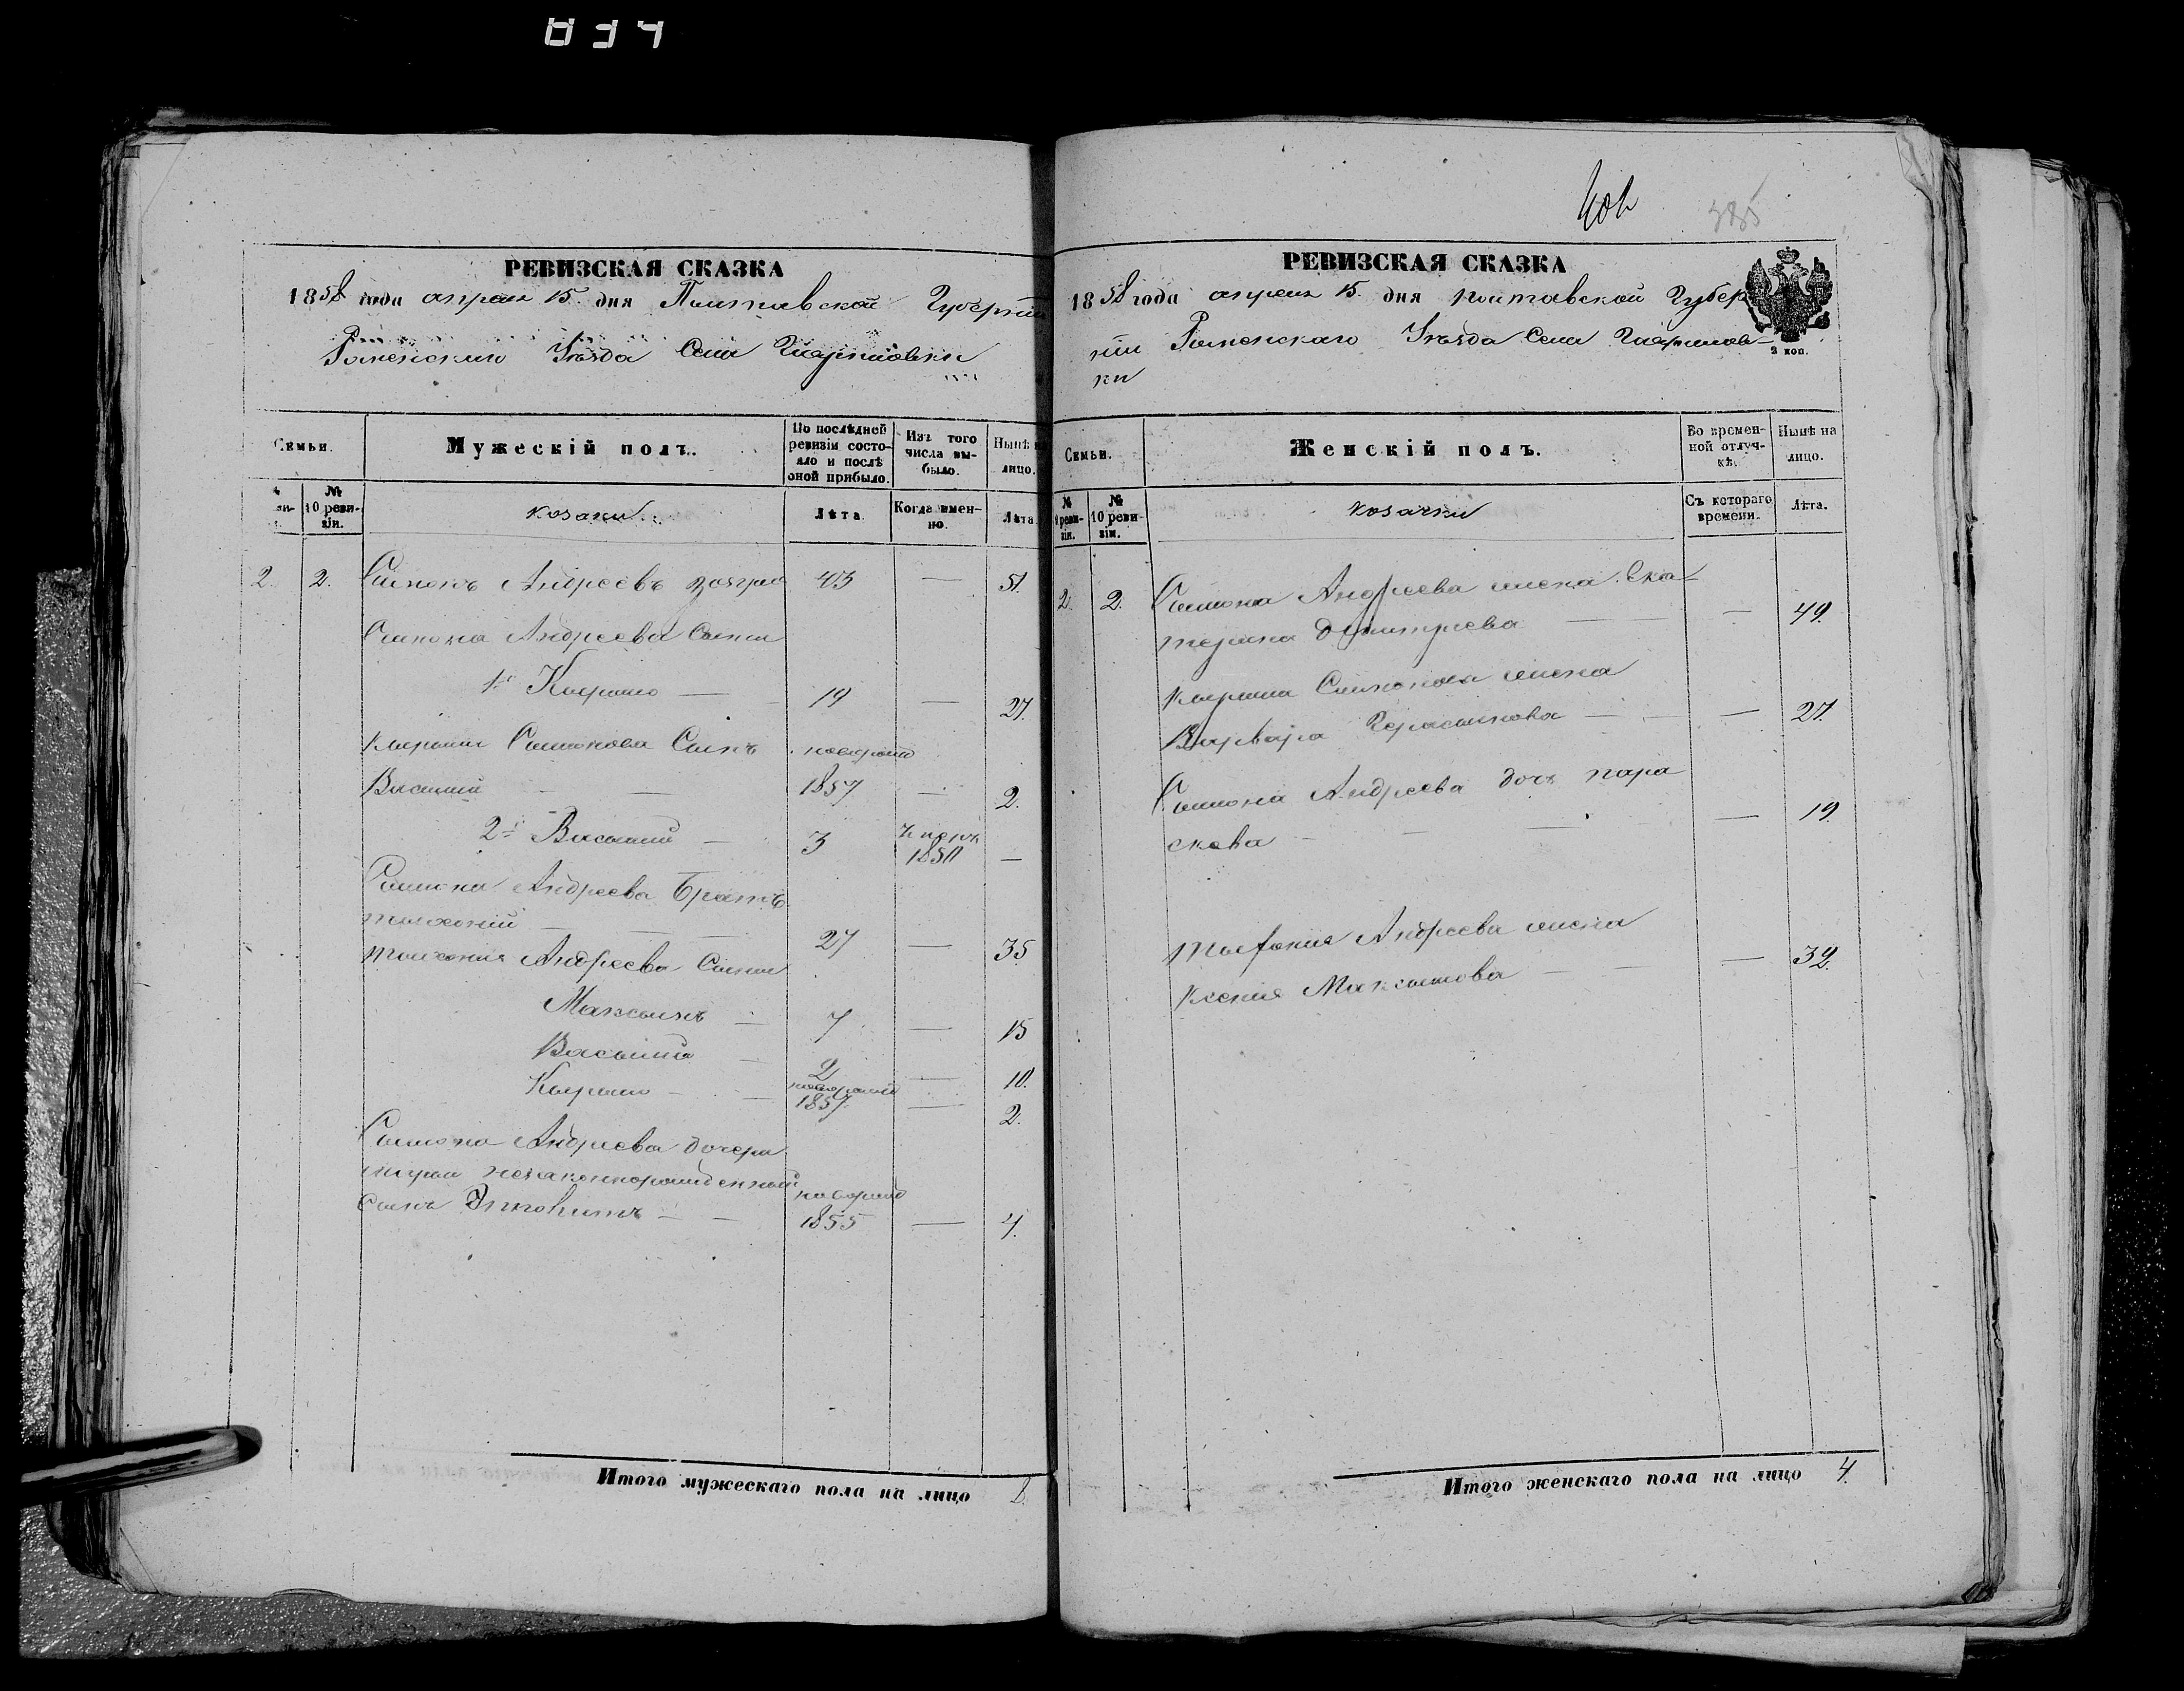 834
РЕВИЗСКАЯ СКАЗКА
1858 года апреля 15. дня Полтавской Губерніи
Роменского Уезда Села
Семьи.
Мужескій полъ.
По послѣдней ревизіи состояло и послѣ оной прибыло.
Изъ того числа выбыло.
Нынѣ на лицо.
№ 10 ревизіи.
козаки
Лѣта
Когда именно.
Лѣта.
2. 2. Симонъ Андреевъ 43 — 51.
Симона Андреева Сыни
1й Кирило — 19 — 27.
Кирила Симонова Сынъ новорожд
Василий — — 1857 — 2.
2й Василий — 3 1850 —
Симона Андреева Братъ
— — — 27 — 35
Андреева Сыни
Максимъ — 7 — 15
Василий — 2 — 10.
Кирило — — новорожд 1857 — 2.
Симона Андреева дочери
незаконнорожденный
сынъ — — новорожд 1855 — 4.
Итого мужескаго пола на лицо 8.
385
РЕВИЗСКАЯ СКАЗКА
1858 года апреля 15. дня полтавской Губер
ніи Роменскаго Уезда Села
ки
2 коп.
Семьи.
Женскій полъ.
Во временной отлучкѣ.
Нынѣ на лицо.
№ 9 ревизіи.
№ 10 ревизіи.
козачки
Съ котораго времени.
Лѣта.
2. 2. Симона Андреева жена Ека
терина Димитриева — — 49.
Кирила Симонова жена
Варвара Герасимова — — — 27.
Симона Андреева дочь пара
скева — — — — 19.
Андреева жена
Ксения Максимова — — — 32.
Итого женскаго пола на лицо 4.